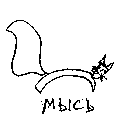 мысь